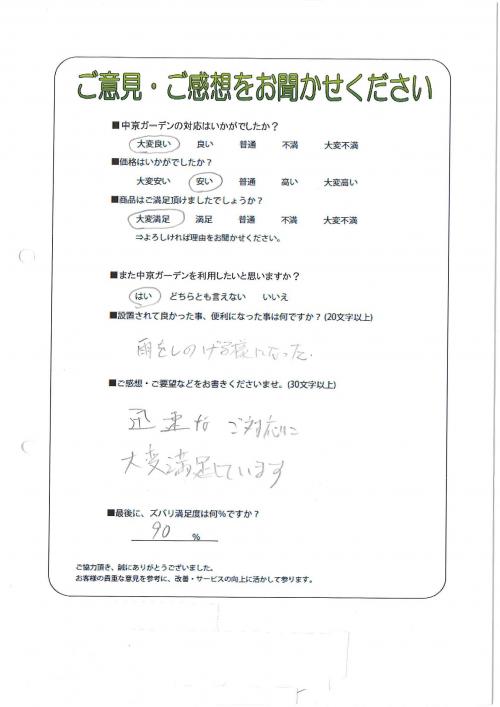 ご意見・ご感想をお聞かせください
■中京ガーデンの対応はいかがでしたか？
大変良い 良い 普通 不満 大変不満
■価格はいかがでしたか？
大変安い 安い 普通 高い 大変高い
■商品はご満足頂けましたでしょうか？
大変満足 満足 普通 不満 大変不満
⇒よろしければ理由をお聞かせください。
■また中京ガーデンを利用したいと思いますか？
はい どちらとも言えない いいえ
■設置されて良かった事、便利になった事は何ですか？(20文字以上)
雨をしのげる様になった.
■ご感想・ご要望などをお書きくださいませ。(30文字以上)
迅速な ご対応に
大変満足しています
■最後に、ズバリ満足度は何％ですか？
90 ％
ご協力頂き、誠にありがとうございました。
お客様の貴重な意見を参考に、改善・サービスの向上に活かして参ります。